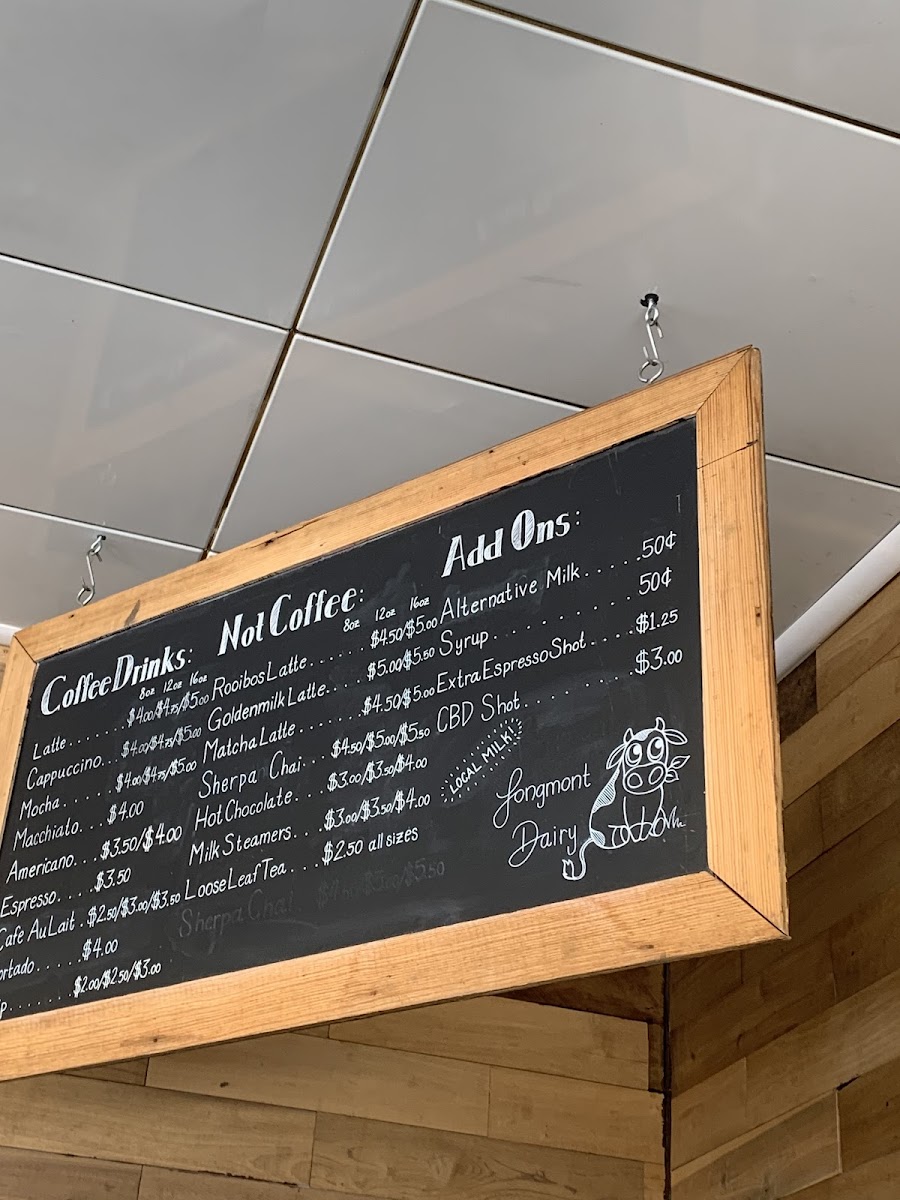 Coffee Drinks:
8oz 12oz 16oz
Latte....... $4.00/$4.75/$5.00
Cappuccino... $4.00/$4.75/$5.00
Mocha...... $4.00/$4.75/$5.00
Macchiato... $4.00
Americano... $3.50/$4.00
Espresso.... $3.50
Cafe Au Lait. $2.50/$3.00/$3.50
ortado..... $4.00
p....... $2.00/$2.50/$3.00
Not Coffee:
8oz 12oz 16oz
Rooibos Latte...... $4.50/$5.00
Goldenmilk Latte.... $5.00/$5.50
Matcha Latte....... $4.50/$5.00
Sherpa Chai... $4.50/$5.00/$5.50
Hot Chocolate... $3.00/$3.50/$4.00
Milk Steamers... $3.00/$3.50/$4.00
Loose Leaf Tea... $2.50 all sizes
Sherpa Chai $4.50/$5.00/$5.50
Add Ons:
Alternative Milk.....50¢
Syrup......... 50¢
Extra Espresso Shot.....$1.25
CBD Shot........ $3.00
LOCAL MILK!
Longmont
Dairy